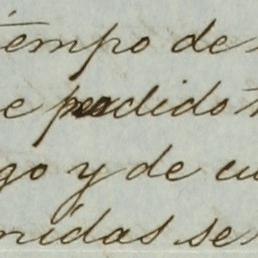 tiempo de
e perdido
go y de cu
midas se